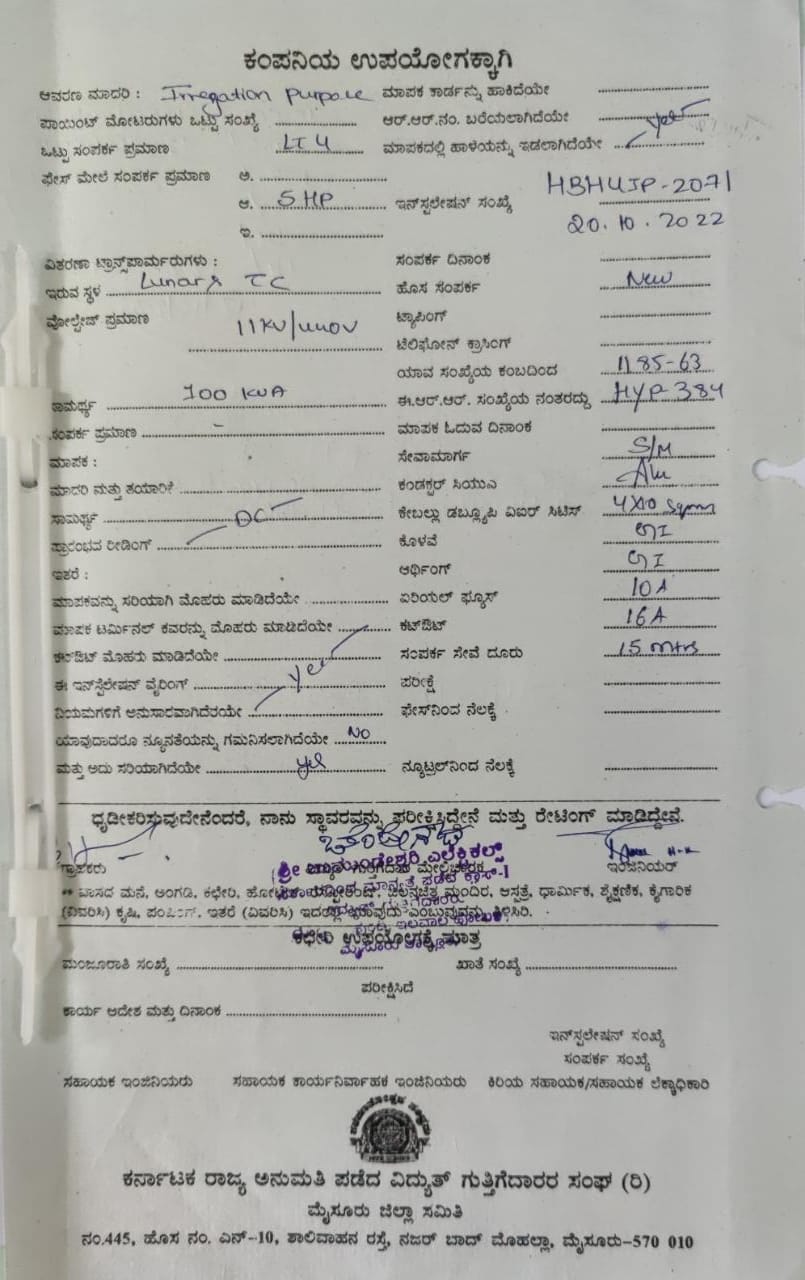 ಕಂಪನಿಯ ಉಪಯೋಗಕ್ಕಾಗಿ
ಆವರಣ ಮಾದರಿ : Irregation purpose ಮಾಪಕ ಕಾರ್ಡನ್ನು ಹಾಕಿದೆಯೇ
ಪಾಯಿಂಟ್ ಮೋಟರುಗಳು ಒಟ್ಟು ಸಂಖ್ಯೆ ಆರ್.ಆರ್.ನಂ. ಬರೆಯಲಾಗಿದೆಯೇ
ಒಟ್ಟು ಸಂಪರ್ಕ ಪ್ರಮಾಣ LT 4 ಮಾಪಕದಲ್ಲಿ ಹಾಳೆಯನ್ನು ಇಡಲಾಗಿದೆಯೇ yes
ಫೇಸ್ ಮೇಲೆ ಸಂಪರ್ಕ ಪ್ರಮಾಣ ಅ.
ಆ. 5 HP ಇನ್‌ಸ್ಟಲೇಷನ್ ಸಂಖ್ಯೆ HBHUIP-2071
ಇ. 20.10.2022
ವಿತರಣಾ ಟ್ರಾನ್ಸ್‌ಪಾರ್ಮರುಗಳು : ಸಂಪರ್ಕ ದಿನಾಂಕ
ಇರುವ ಸ್ಥಳ TC ಹೊಸ ಸಂಪರ್ಕ New
ವೋಲ್ಟೇಜ್ ಪ್ರಮಾಣ 11KV/440V ಟ್ಯಾಪಿಂಗ್
ಟೆಲಿಫೋನ್ ಕ್ರಾಸಿಂಗ್
ಯಾವ ಸಂಖ್ಯೆಯ ಕಂಬದಿಂದ 1185-63
ಸಾಮರ್ಥ್ಯ 100 KVA ಈ.ಆರ್.ಆರ್. ಸಂಖ್ಯೆಯ ನಂತರದ್ದು HYP-384
ಸಂಪರ್ಕ ಪ್ರಮಾಣ - ಮಾಪಕ ಓದುವ ದಿನಾಂಕ
ಮಾಪಕ : ಸೇವಾಮಾರ್ಗ S/M
ಮಾದರಿ ಮತ್ತು ತಯಾರಿಕೆ ಕಂಡಕ್ಟರ್ ಸಿಯುಎ Alu
ಸಾಮರ್ಥ್ಯ DC ಕೇಬಲ್ಲು ಡಬ್ಲ್ಯೂಪಿ ವಿಐರ್ ಸಿಟಿಸ್ 4X10 Sqmm
ಪ್ರಾರಂಭವ ರೀಡಿಂಗ್ ಕೊಳವೆ GI
ಇತರೆ : ಅರ್ಥಿಂಗ್ GI
ಮಾಪಕವನ್ನು ಸರಿಯಾಗಿ ಮೊಹರು ಮಾಡಿದೆಯೇ ಏರಿಯಲ್ ಫ್ಯೂಸ್ 10A
ಮಾಪಕ ಟರ್ಮಿನಲ್ ಕವರನ್ನು ಮೊಹರು ಮಾಡಿದೆಯೇ ಕಟ್‌ಔಟ್ 16A
ಕಟ್‌ಔಟ್ ಮೊಹರು ಮಾಡಿದೆಯೇ ಸಂಪರ್ಕ ಸೇವೆ ದೂರು 15 mtrs
ಈ ಇನ್‌ಸ್ಟೆಲೇಷನ್ ವೈರಿಂಗ್ yes ಪರೀಕ್ಷೆ
ನಿಯಮಗಳಿಗೆ ಅನುಸಾರವಾಗಿದೆರೆಯೇ ಫೇಸ್‌ನಿಂದ ನೆಲಕ್ಕೆ
ಯಾವುದಾದರೂ ನ್ಯೂನತೆಯನ್ನು ಗಮನಿಸಲಾಗಿದೆಯೇ No
ಮತ್ತು ಅದು ಸರಿಯಾಗಿದೆಯೇ yes ನ್ಯೂಟ್ರಲ್‌ನಿಂದ ನೆಲಕ್ಕೆ
ಧೃಡೀಕರಿಸುವುದೇನೆಂದರೆ, ನಾನು ಸ್ಥಾವರವನ್ನು ಪರೀಕ್ಷಿಸಿದ್ದೇನೆ ಮತ್ತು ರೇಟಿಂಗ್ ಮಾಡಿದ್ದೇನೆ.
ಗ್ರಾಹಕರು ಮೇಲ್ವಿಚಾರಕ ಇಂಜಿನಿಯರ್
** ವಾಸದ ಮನೆ, ಅಂಗಡಿ, ಕಛೇರಿ, ಚಲನಚಿತ್ರ ಮಂದಿರ, ಆಸ್ಪತ್ರೆ, ಧಾರ್ಮಿಕ, ಶೈಕ್ಷಣಿಕ, ಕೈಗಾರಿಕ
(ವಿವರಿಸಿ) ಕೃಷಿ, ಇತರೆ (ವಿವರಿಸಿ) ಎಂಬುವುದನ್ನು ತಿಳಿಸಿರಿ.
ಕಛೇರಿ ಉಪಯೋಗಕ್ಕೆ ಮಾತ್ರ
ಮಂಜೂರಾತಿ ಸಂಖ್ಯೆ ಖಾತೆ ಸಂಖ್ಯೆ
ಪರೀಕ್ಷಿಸಿದೆ
ಕಾರ್ಯ ಆದೇಶ ಮತ್ತು ದಿನಾಂಕ
ಇನ್‌ಸ್ಟಲೇಷನ್ ಸಂಖ್ಯೆ
ಸಂಪರ್ಕ ಸಂಖ್ಯೆ
ಸಹಾಯಕ ಇಂಜಿನಿಯರು ಸಹಾಯಕ ಕಾರ್ಯನಿರ್ವಾಹಕ ಇಂಜಿನಿಯರು ಕಿರಿಯ ಸಹಾಯಕ/ಸಹಾಯಕ ಲೆಕ್ಕಾಧಿಕಾರಿ
ಕರ್ನಾಟಕ ರಾಜ್ಯ ಅನುಮತಿ ಪಡೆದ ವಿದ್ಯುತ್ ಗುತ್ತಿಗೆದಾರರ ಸಂಘ (ರಿ)
ಮೈಸೂರು ಜಿಲ್ಲಾ ಸಮಿತಿ
ನಂ.445, ಹೊಸ ನಂ. ಎನ್-10, ಶಾಲಿವಾಹನ ರಸ್ತೆ, ನಜರ್ ಬಾದ್ ಮೊಹಲ್ಲಾ, ಮೈಸೂರು-570 010